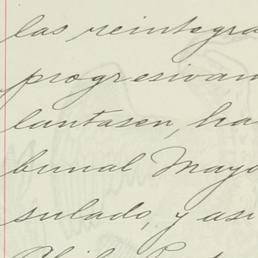 las reintegra
progresivam
lantasen, ha
bunal Mayo
sulado, y asi